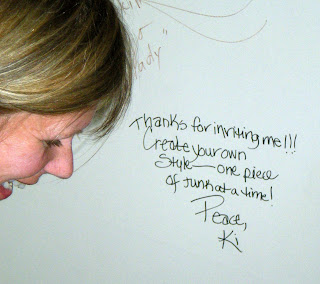 ady"
Thanks for inviting me!!!
Create your own
Style—one piece
of junk at a time!
Peace,
Ki